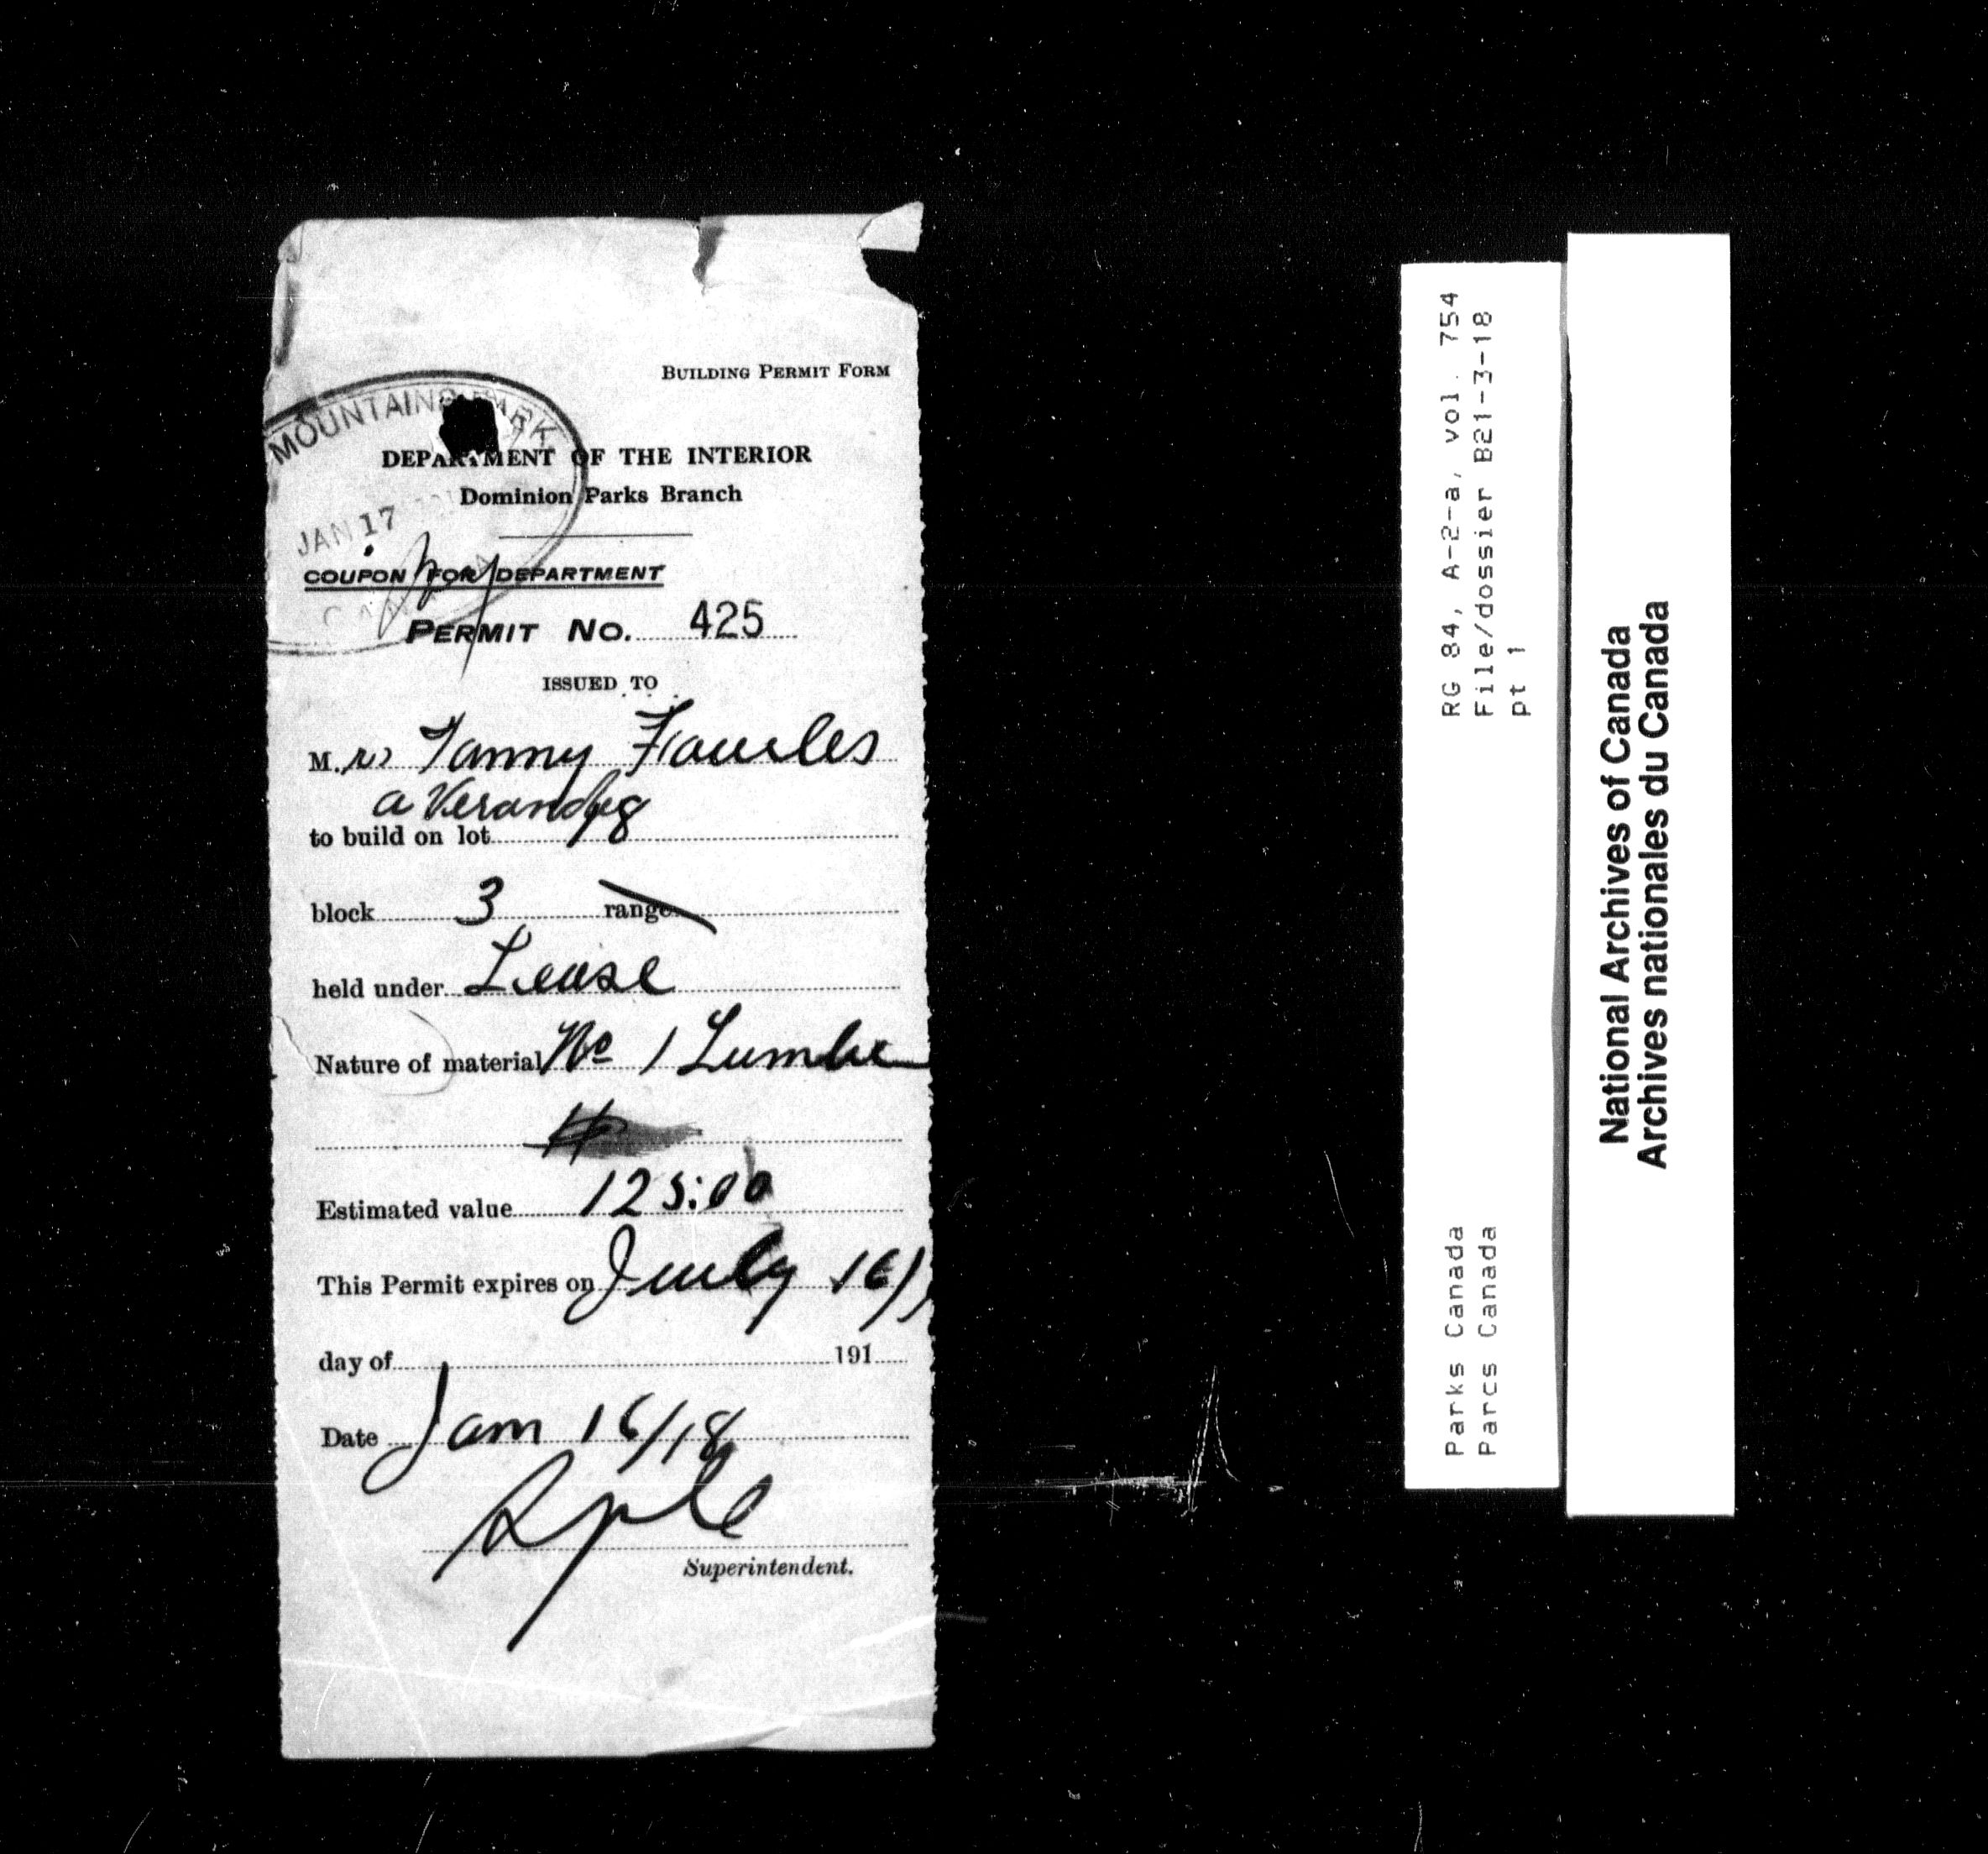 BUILDING PERMIT FORM
MOUNTAINS PARK
DEPARTMENT OF THE INTERIOR
Dominion Parks Branch
JAN 17
COUPON FOR DEPARTMENT
PERMIT No. 425
ISSUED TO
M.rs Fanny Fowles
a Verandah
to build on lot 18
block 3 range
held under Lease
Nature of material No 1 Lumbe
Estimated value 125.00
This Permit expires on July 16
day of 191
Date Jan 16/18
Superintendent.
RG 84, A-2-a, vol. 754
File/dossier B21-3-18
pt 1
Parks Canada
Parcs Canada
National Archives of Canada
Archives nationales du Canada